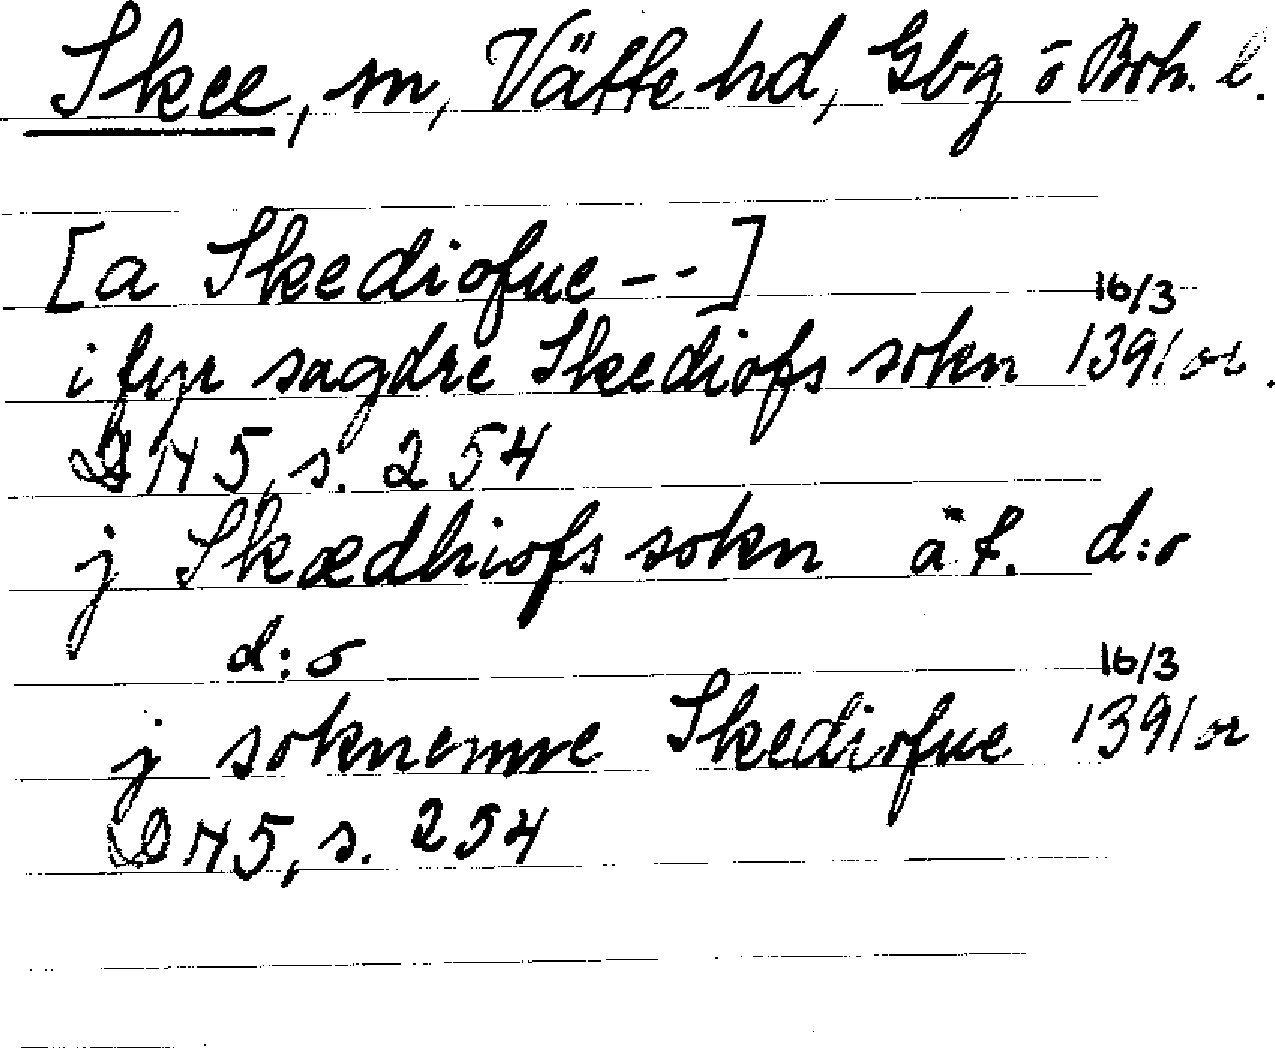 Skee, sn, Vätte hd, Gbg o Boh. l.
[a Skediofue - - -]
i fyr sagdre Skediofs sokn 16/3 1391 or.
DN 5, s. 254
j Skædhiofs sokn ä.f. d:o
d:o
j soknenne Skediofue 16/3 1391 or
DN 5, s. 254